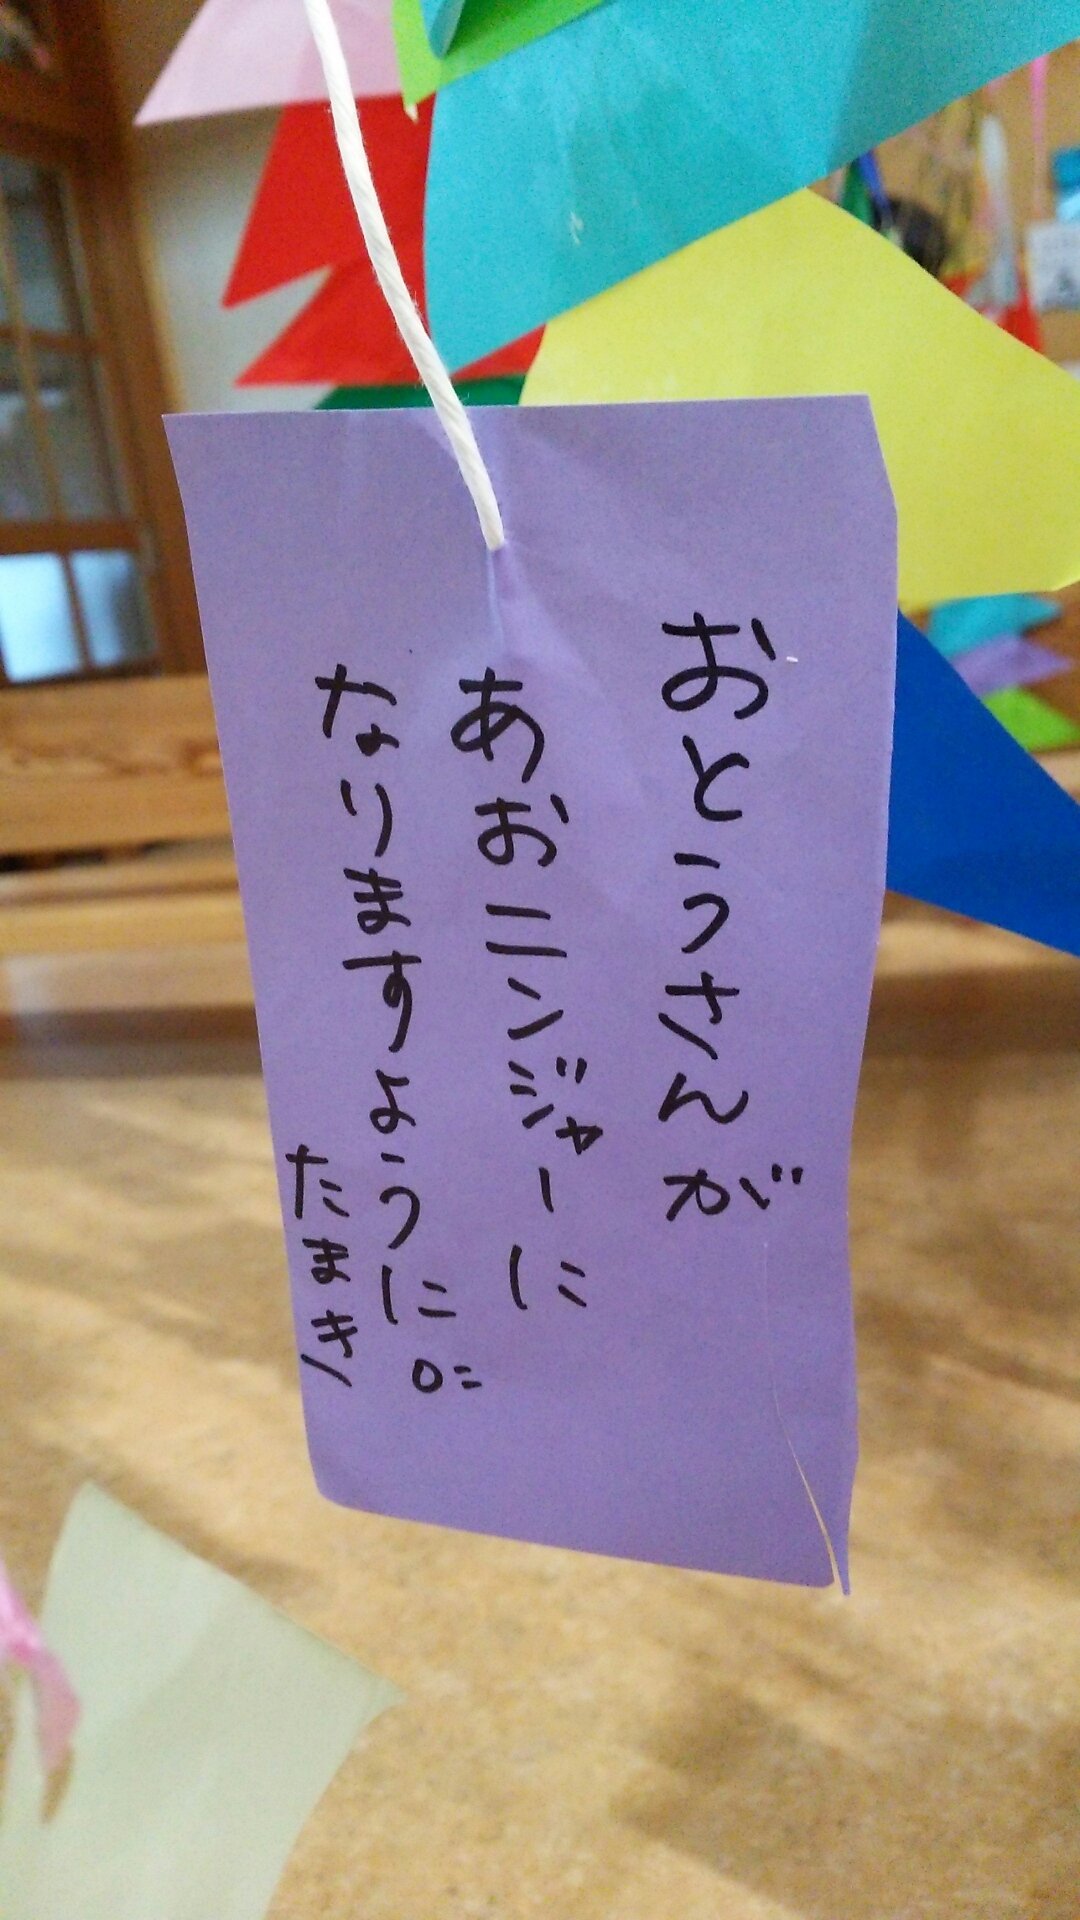 おとうさんが
あおニンジャーに
なりますように。
たまき